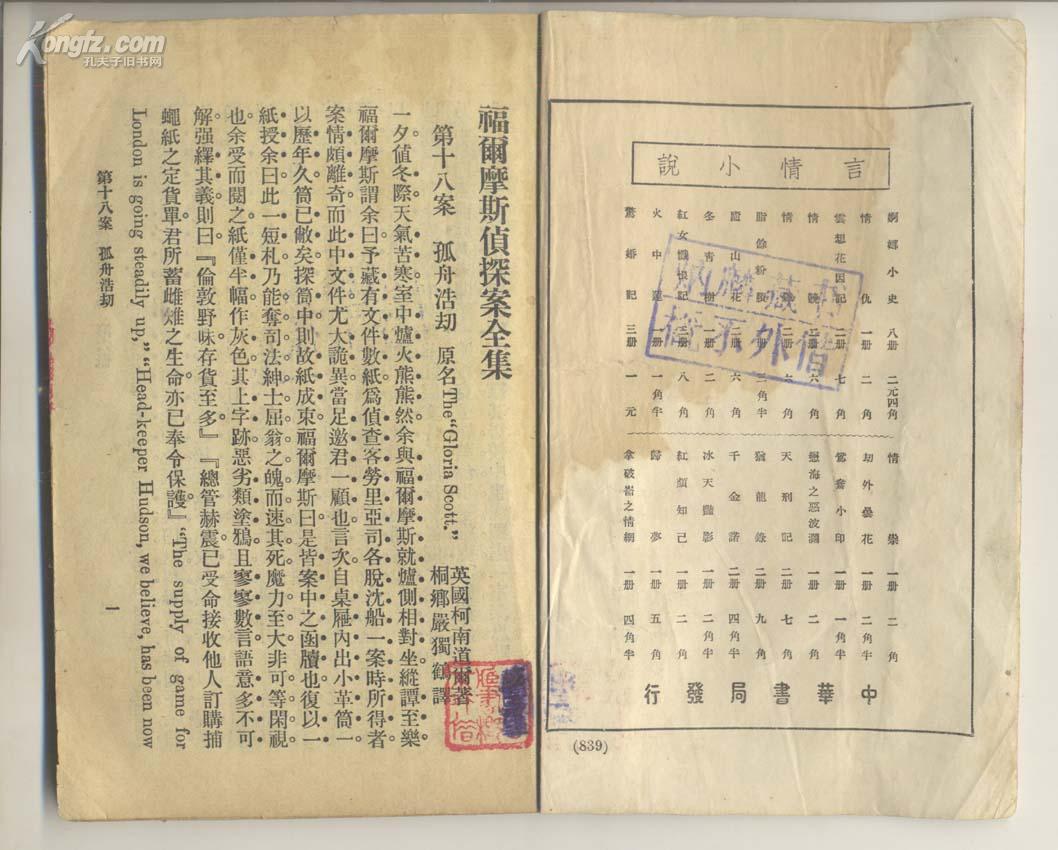 Kongfz.com
孔夫子旧书网
言情小說
婀娜小史 八册 二元四角
情仇 一册 二角
雲想花因記 二册 七角
情競 二册 六角
情鏡 二册 六角
脂餘粉賸 二册 三角半
二册 六角
冬青樹 一册 二角
紅女懺恨記 二册 八角
火中蓮 一册 一角半
驚婚記 三册 一元
情祟 一册 二角
刧外曇花 一册 二角半
鴛奩小印 一册 一角半
戀海之惡波瀾 一册 二角
天刑記 二册 七角
猶龍錄 二册 九角
千金諾 二册 四角半
冰天豔影 一册 二角半
紅顏知己 一册 二角
歸夢 一册 五角
拿破崙之情網 一册 四角半
中華書局發行
(839)
福爾摩斯偵探案全集
第十八案　孤舟浩刧　原名The "Gloria Scott."
英國柯南道爾著
桐鄉嚴獨鶴譯
一夕値冬際天氣苦寒室中爐火熊熊然余與福爾摩斯就爐側相對坐縱譚至樂
福爾摩斯謂余曰予藏有文件數紙爲偵查客勞里亞司各脫沈船一案時所得者
案情頗離奇而此中文件尤大詭異當足邀君一顧也言次自桌屜內出小革筒一
以歷年久筒已敝矣探筒中則故紙成束福爾摩斯曰是皆案中之函牘也復以一
紙授余曰此一短札乃能奪司法紳士屈翁之魄而速其死魔力至大非可等閑視
也余受而閱之紙僅半幅作灰色其上字跡惡劣類塗鴉且寥寥數言語意多不可
解强繹其義則曰『倫敦野味存貨至多』『總管赫震已受命接收他人訂購捕
蠅紙之定貨單君所蓄雌雉之生命亦已奉令保護』"The supply of game for
London is going steadily up," "Head-keeper Hudson, we believe, has been now
第十八案　孤舟浩刧
一